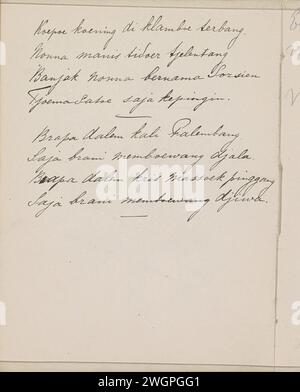 Koepoe koening di klamboe terbang
Nonna manis tidoer tjelentang
Banjak nonna bernama Sorsien
Tjoema satoe saja kepingin.
Brapa dalem kali Palembang
Saja brani memboewang djala.
Brapa dalem kris masoek pinggang
Saja brani memboewang djiwa.
alamy
Image ID: 2WGPGG1
www.alamy.com